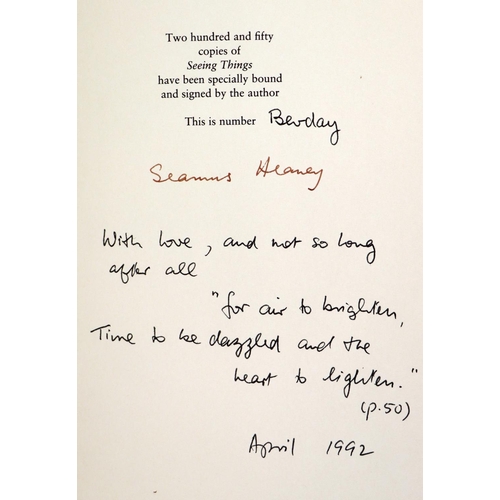 Two hundred and fifty
copies of
Seeing Things
have been specially bound
and signed by the author
This is number Bevday
Seamus Heaney
With love, and not so long
after all
"for air to brighten,
Time to be dazzled and the
heart to lighten."
(p.50)
April 1992